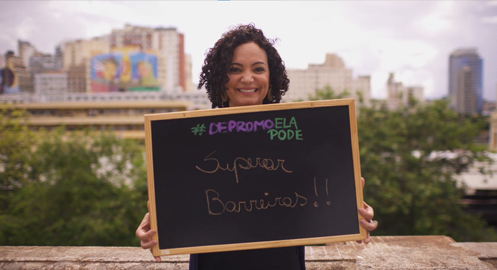 #DEPROMOELA
PODE
Superar
Barreiras!!